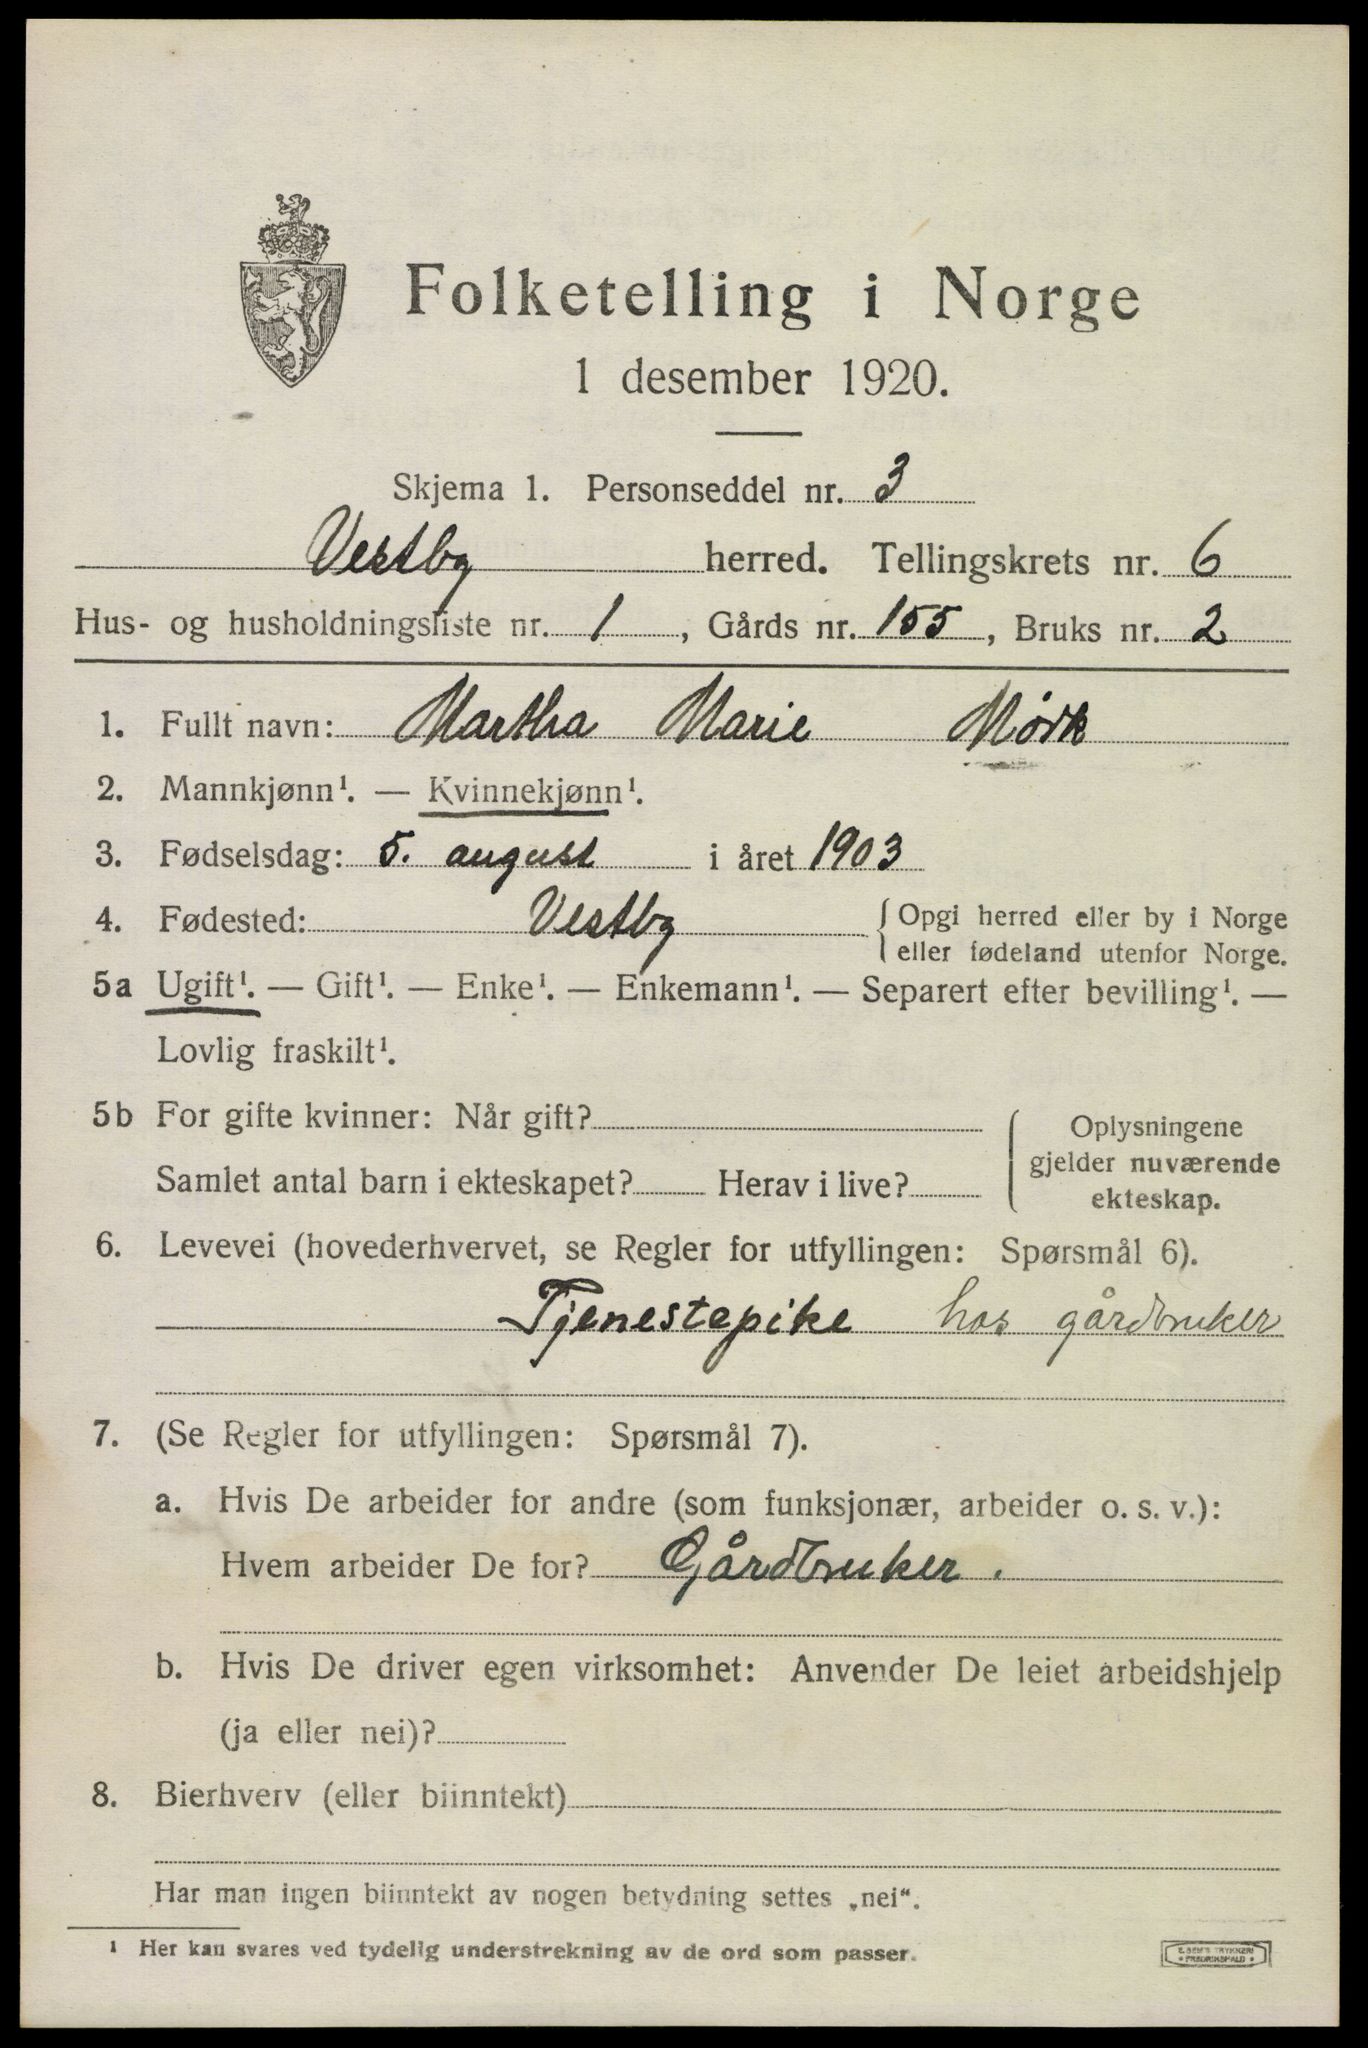 Folketelling i Norge
1 desember 1920.
Skjema 1. Personseddel nr. 3
Vestby herred. Tellingskrets nr. 6
Hus- og husholdningsliste nr. 1, Gårds nr. 155, Bruks nr. 2
1. Fullt navn: Martha Marie Mørk
2. Mannkjønn¹. — Kvinnekjønn¹.
3. Fødselsdag: 5. august i året 1903
4. Fødested: Vestby { Opgi herred eller by i Norge
eller fødeland utenfor Norge.
5a Ugift¹. — Gift¹. — Enke¹. — Enkemann¹. — Separert efter bevilling¹. —
Lovlig fraskilt¹.
5b For gifte kvinner: Når gift?
Samlet antal barn i ekteskapet? Herav i live?
Oplysningene
gjelder nuværende
ekteskap.
6. Levevei (hovederhvervet, se Regler for utfyllingen: Spørsmål 6).
Tjenestepike hos gårdbruker
7. (Se Regler for utfyllingen: Spørsmål 7).
a. Hvis De arbeider for andre (som funksjonær, arbeider o. s. v.):
Hvem arbeider De for? Gårdbruker.
b. Hvis De driver egen virksomhet: Anvender De leiet arbeidshjelp
(ja eller nei)?
8. Bierhverv (eller biinntekt)
Har man ingen biinntekt av nogen betydning settes „nei“.
¹ Her kan svares ved tydelig understrekning av de ord som passer.
E. SEM'S TRYKKERI
• FREDRIKSHALD •